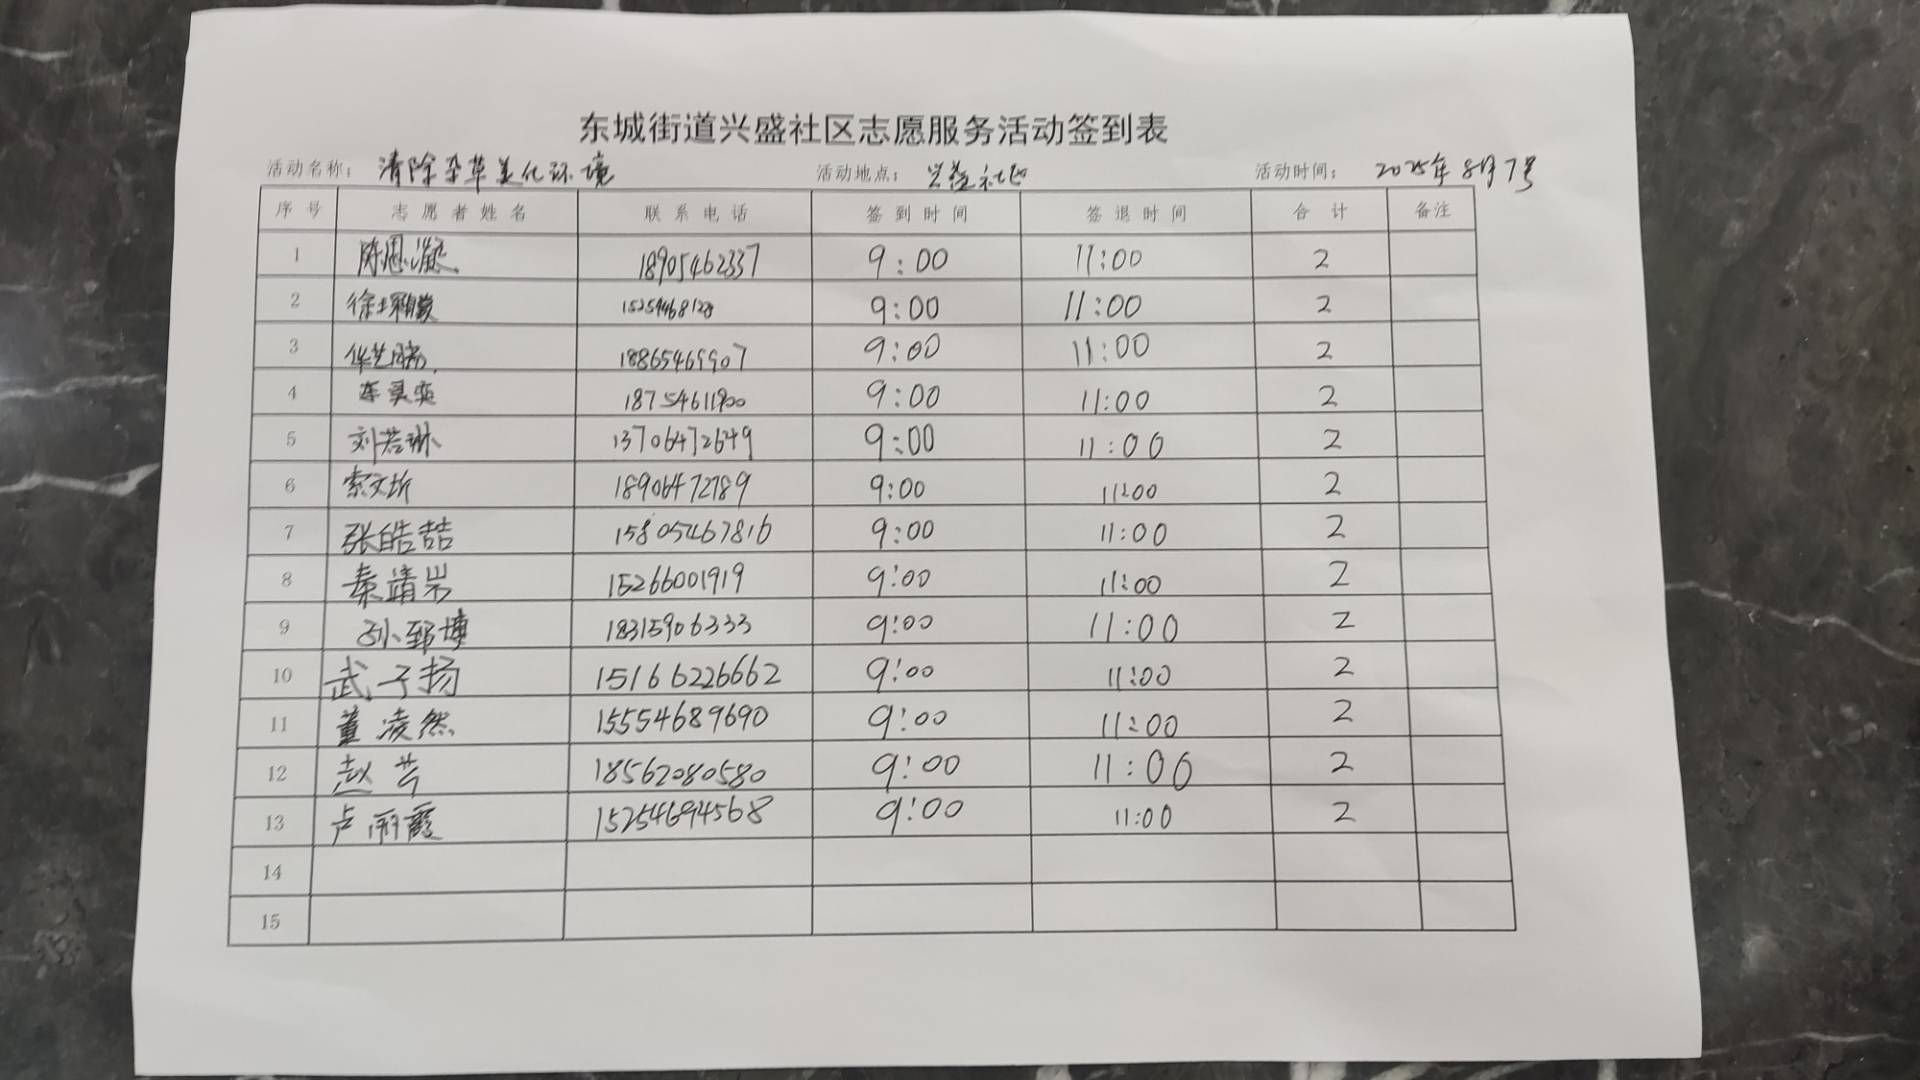 东城街道兴盛社区志愿服务活动签到表
活动名称： 清除杂草美化环境 活动地点： 兴盛社区 活动时间： 2025年8月7号
序号 志愿者姓名 联系电话 签到时间 签退时间 合计 备注
1 陈思凝 18905462337 9:00 11:00 2
2 徐 9:00 11:00 2
3 华艺 18865469907 9:00 11:00 2
4 18754611900 9:00 11:00 2
5 刘若琳 13706472649 9:00 11:00 2
6 索文圻 18906472789 9:00 11:00 2
7 张皓喆 15805467816 9:00 11:00 2
8 秦靖岩 15266001919 9:00 11:00 2
9 孙郅博 18315906333 9:00 11:00 2
10 武子扬 15166226662 9:00 11:00 2
11 董凌然 15554689690 9:00 11:00 2
12 赵芸 18562080580 9:00 11:00 2
13 卢丽霞 15254694568 9:00 11:00 2
14
15